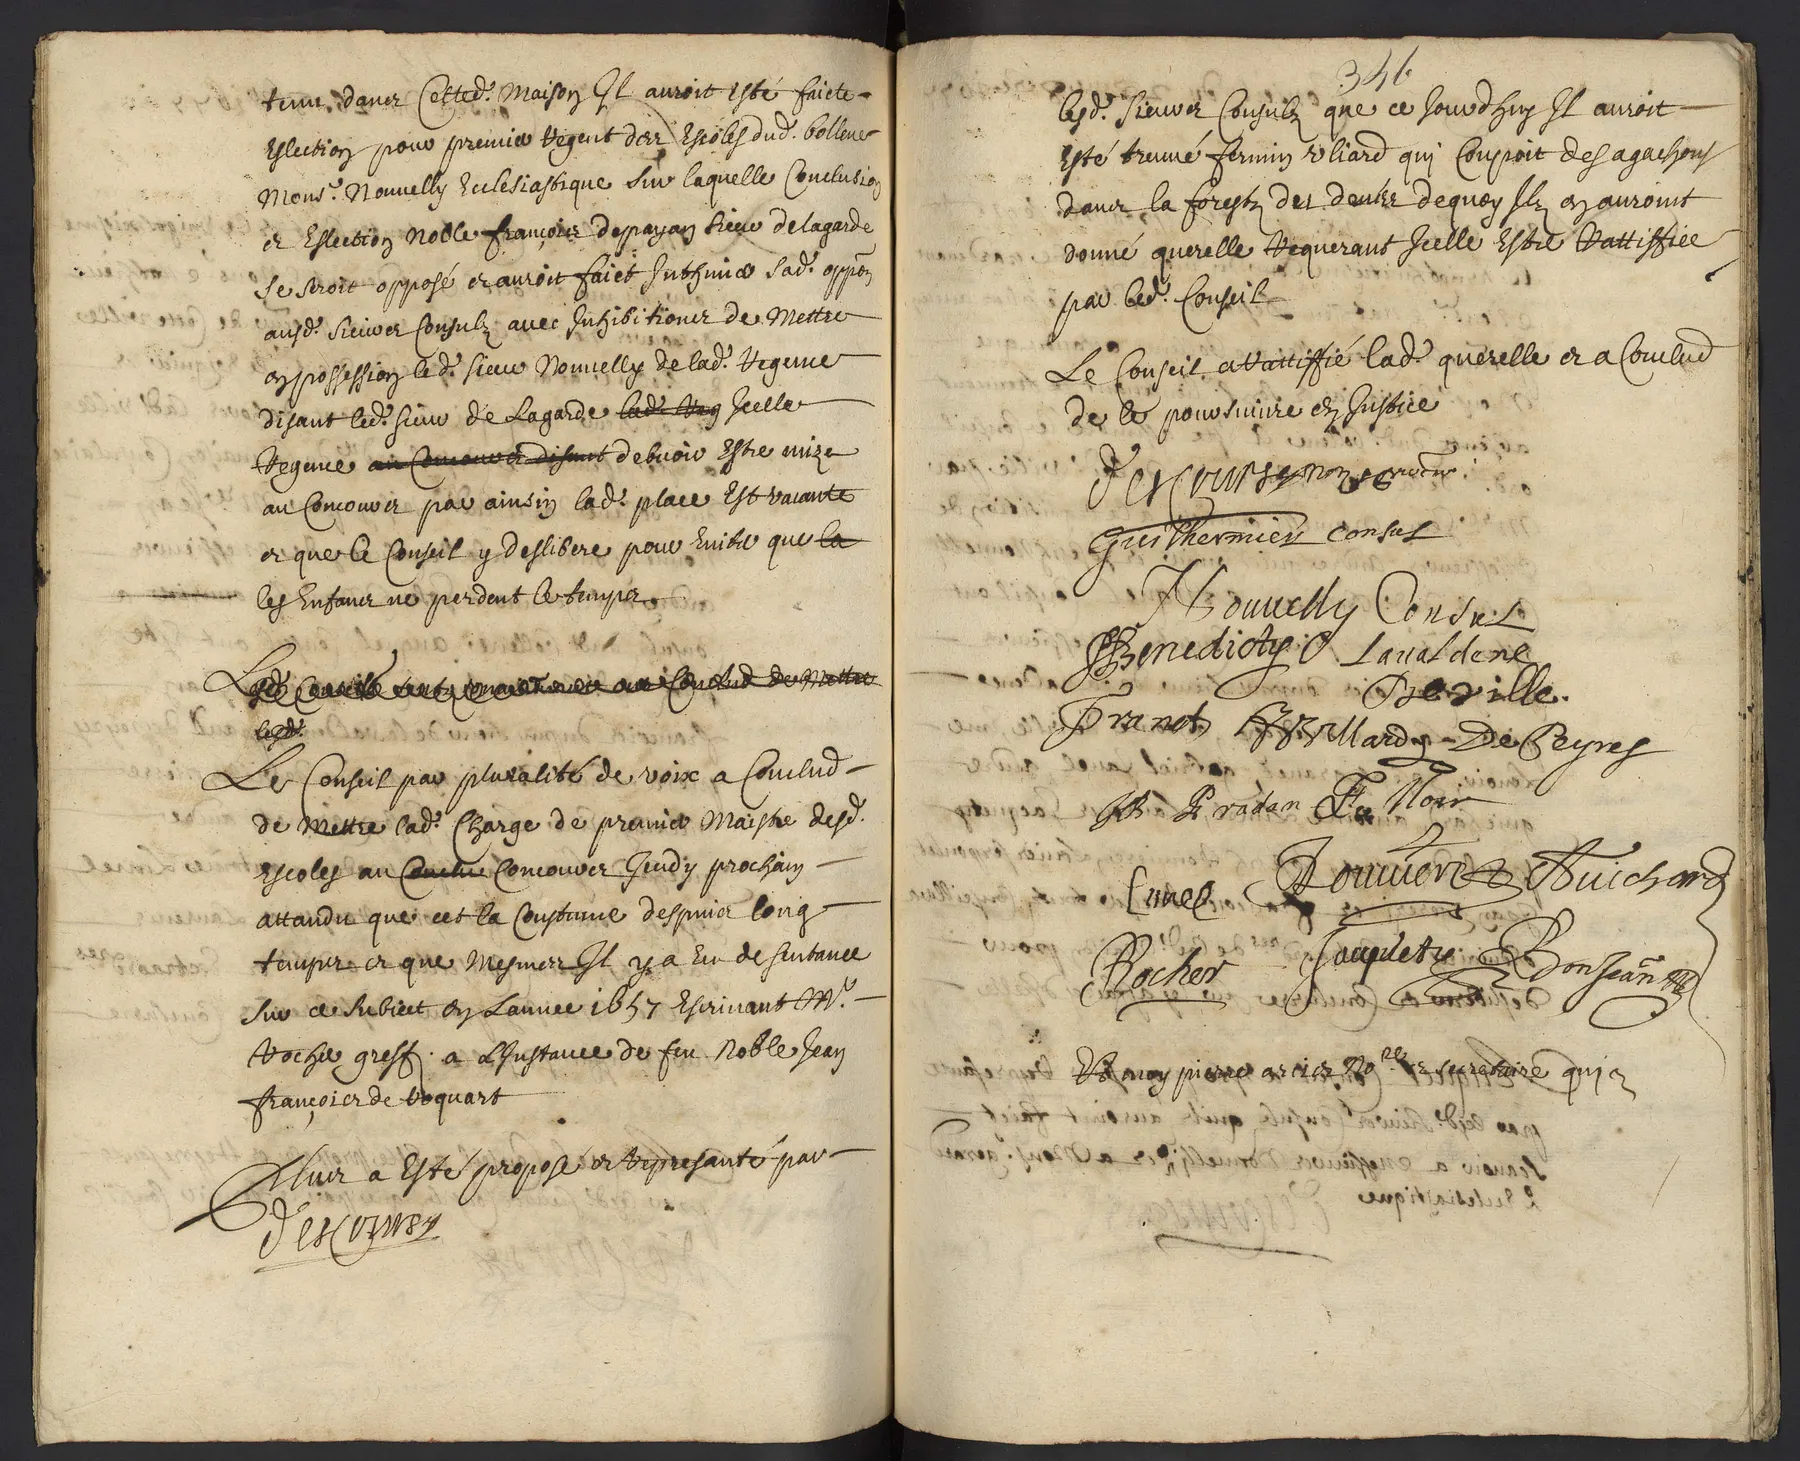 tenu dans Cetted. Maison Il auroit esté faicte
Eslection pour premier Regent des Escoles dud. bollene
Mons.r Nouuelly Ecclesiastique sur laquelle Conclusion
et Eslection Noble françois depayan sieur delagarde
se seroit opposé et auroit faict Inthimer sad. oppon
ausd. sieurs Consulz auec Inhibitions de Mettre
en possession led. sieur Nouuelly de lad. Regence
disant led. sieur de Lagarde lad. Reg Icelle
Regence au Concours disant debuoir Estre mize
au Concours par ainsin lad. place Est vacante
et que le Conseil y deslibere pour Euiter que la
les Enfans ne perdent le temps
Led. Conseil a Conclud de Mettre
lesd.
Le Conseil par pluralité de voix a Conclud
de Mettre lad. Charge de premier Maistre desd.
escoles au Concours Jeudy prochain
attandu que cet la Coustume despuis long
temps et que Mesmes Il y a Eu de sentance
sur ce subiect en Lannee 1657 Escriuant M.r
Rocher greff. a LInstance de feu Noble Jean
françois de Roquart
Plus a Esté proposé et Representé par
d'escours
346
lesd. sieurs Consulz que ce Jourdhuy Il auroit
Esté treuué fermin Rliard quj Coupoit des agachons
dans la forestz des deuès dequoy Ilz en auroint
donné querelle Requerant Icelle Estre Rattiffiée
par led. Conseil
Le Conseil a Rattiffié lad. querelle et a Conclud
de le poursuiure en Justice
d'escours
Guilhermier consul
Nouuelly Consul
Benedicty Laualdene
Deville.
Granet De Peyres
Pradan F. Noir
Guichard
Rocher Jacquety Bonjean
Et moy pierre arcier No.re et secretaire quj a